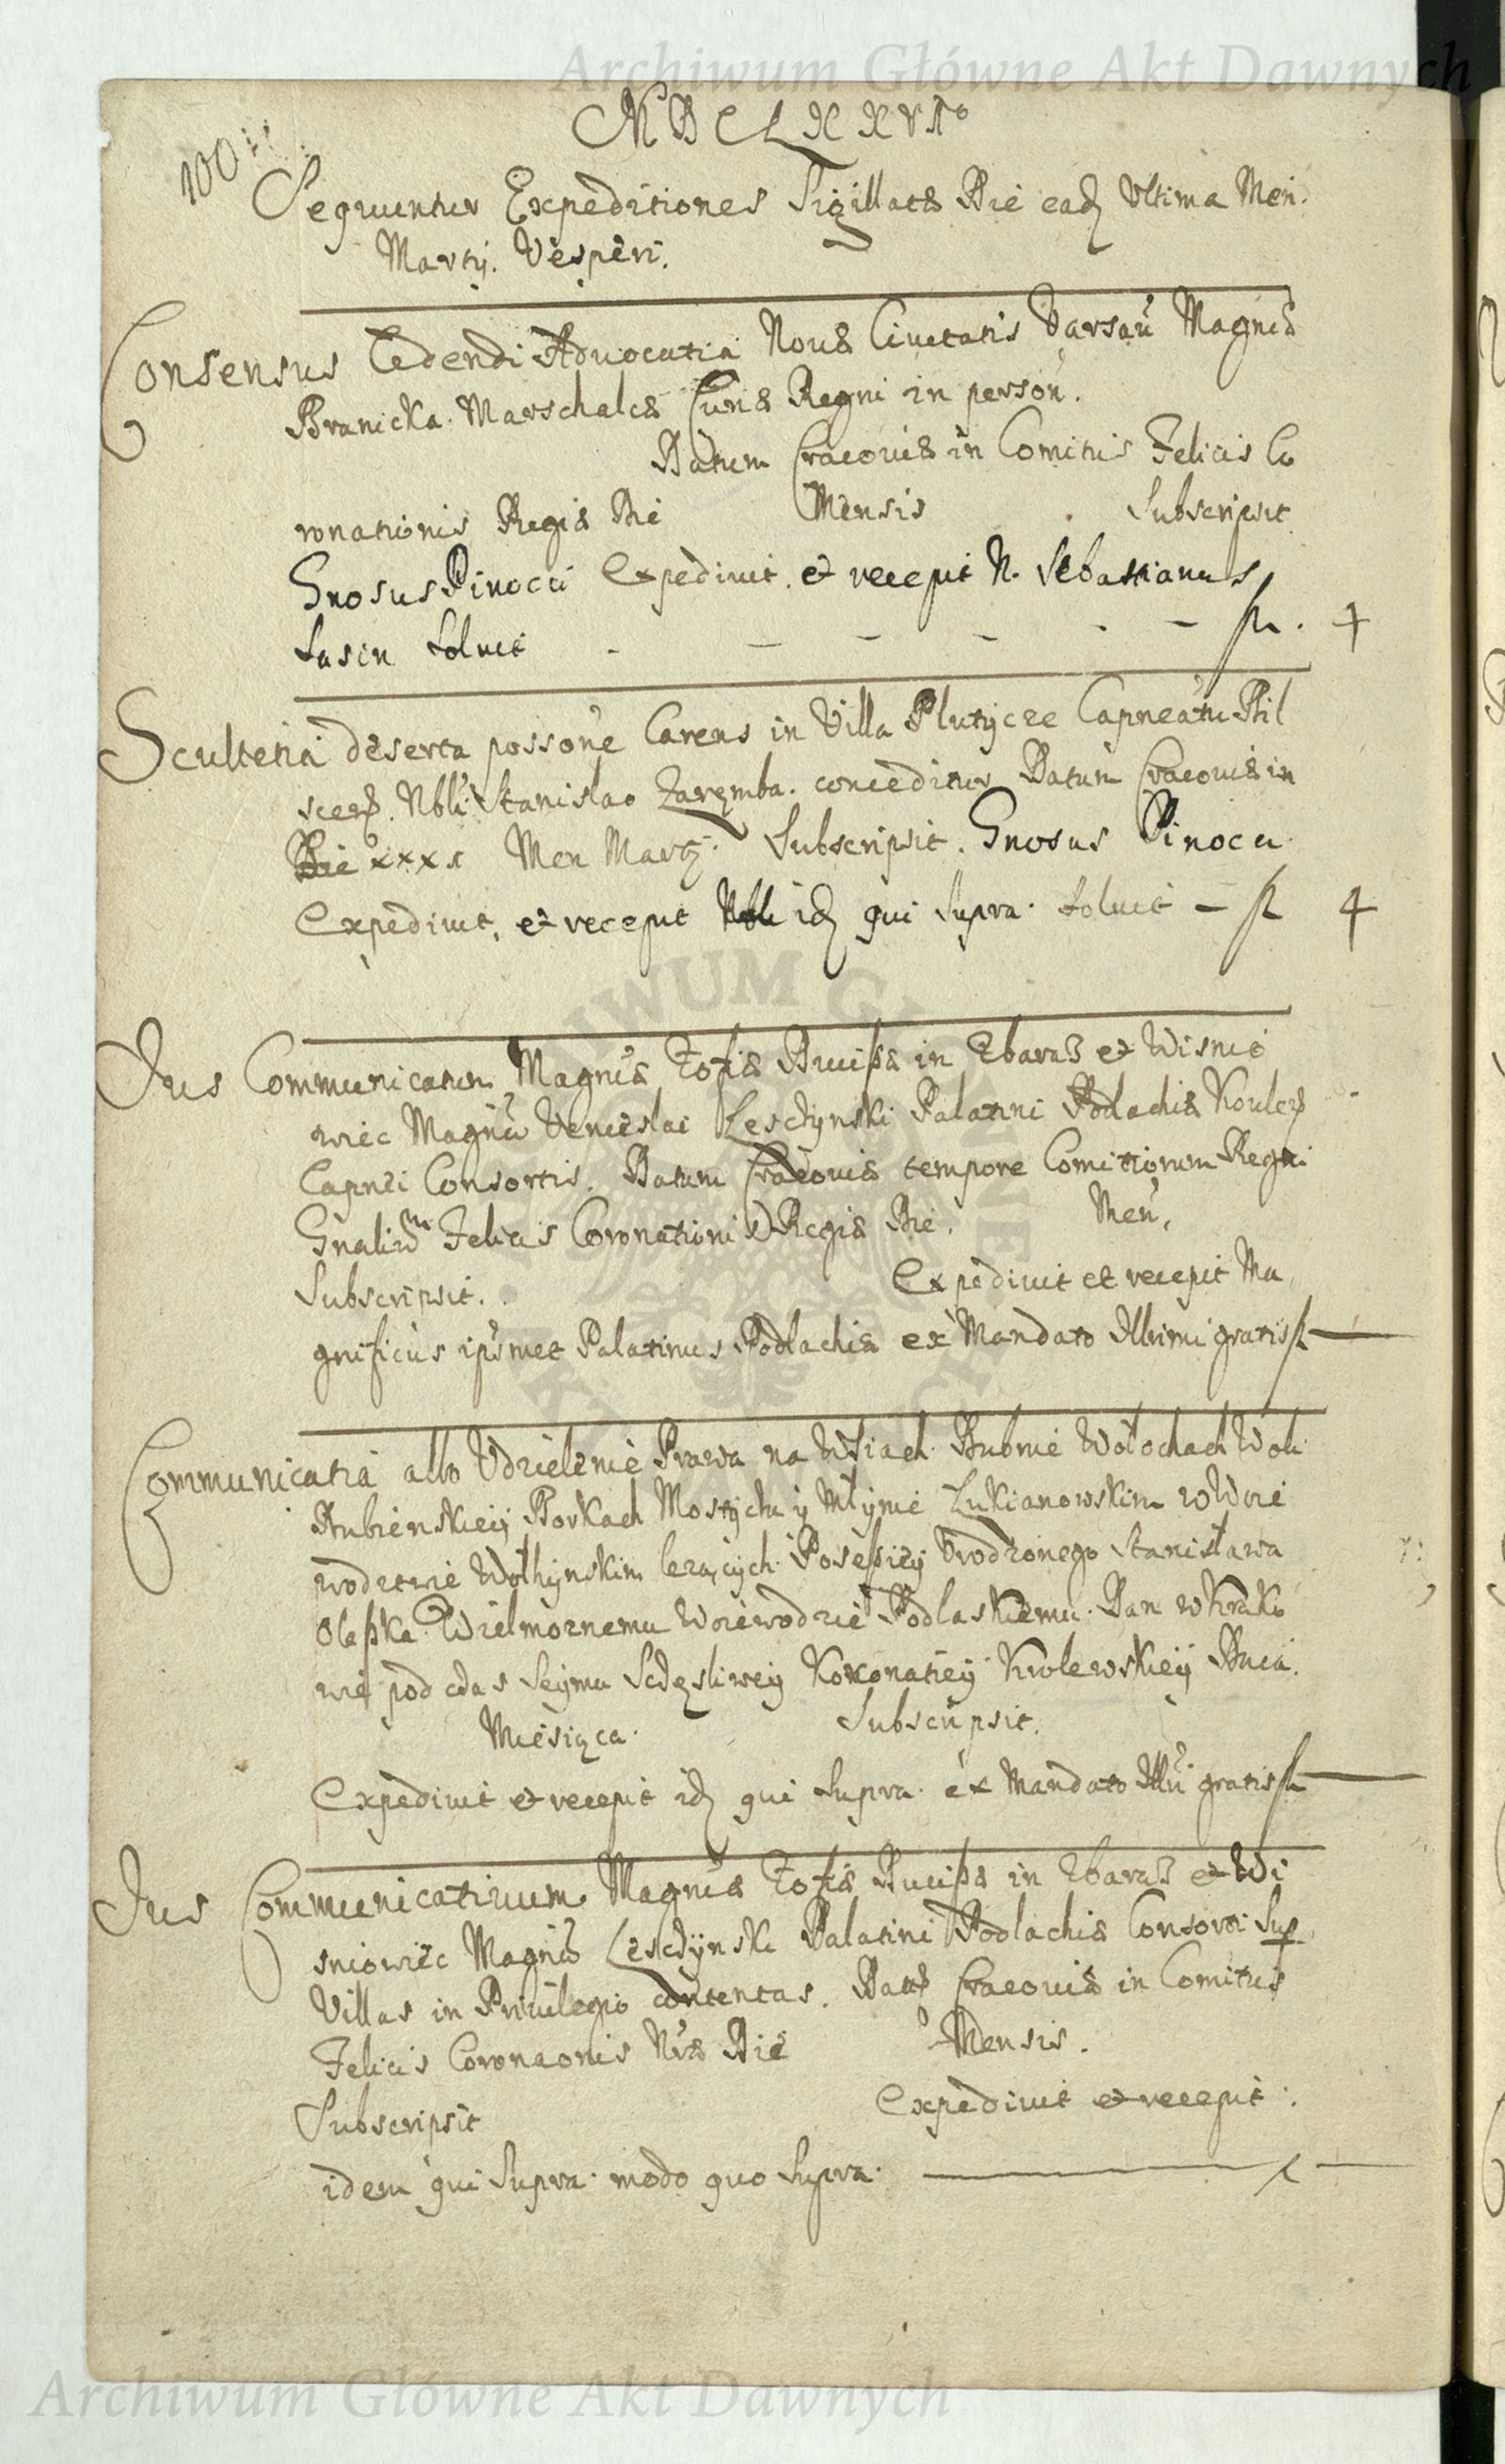 Archiwum Główne Akt Dawnych
MDCLXXVIo
100
Sequuntur Expeditiones Sigillatæ Die eadq Vltima Men.
Martij. Vesperi.
Consensus Cedendi Aduocatia Nouæ Ciuitatis Varsau Magnca
Branicka Marschalcæ Curiæ Regni in person.
Datum Cracouiæ in Comitiis Felicis Co
ronationis Regiæ Die Mensis Subscripsit
Gnosus Pinocci Expediuit et recepit N. Sebastianus
soluit - - - - - fl. 4
Scultetia deserta possone Carens in Villa Plutycze Capneatu Bil
scen. Nbli Stanislao Zaremba. conceditur Datum Cracouiæ in
Die xxxı Men Martij. Subscripsit. Gnosus Pinocci
Expediuit, et recepit Nbli idq qui Supra. soluit - fl 4
Jus Communicatum Magncæ Zofiæ Ducissæ in Zbaraz et Wisnio
wiec Magnci Venceslai Lesczynski Palatini Podlachiæ Koules
Capnei Consortis. Datum Cracouiæ tempore Comitiorum Regni
Gnalium Felicis Coronationis Regiæ Die. Men,
Subscripsit. Expediuit et recepit Ma
gnificus ipsmet Palatinus Podlachiæ ex Mandato Illrimi gratis fl —
Communicatia albo Vdzielenie Prawa na Wsiach Dubnie Wołochach Woli
Dubienskiey Borkach Mostychu y Młynie Lukianowskim w Woie
wodztwie Wołhynskim lezących Posessiey Vrodzonego Stanisława
Olęska Wielmoznemu Woiewodzie Podlaskiemu. Dan w Krako
wie pod czas Seymu Sczęsliwey Koronatiey Krolewskiey Dnia.
Miesiąca. Subscripsit.
Expediuit et recepit idq qui Supra. ex Mandato Illri gratis fl —
Jus Communicatiuum Magncæ Zofiæ Ducissæ in Zbaraz et Wi
sniowiec Magnci Lesczynski Palatini Podlachiæ Consorti Sup
Villas in Priuilegio contentas. Datt Cracouiæ in Comitiis
Felicis Coronaonis Nræ Die Mensis.
Subscripsit Expediuit et recepit.
idem qui Supra. modo quo Supra. —
Archiwum Główne Akt Dawnych